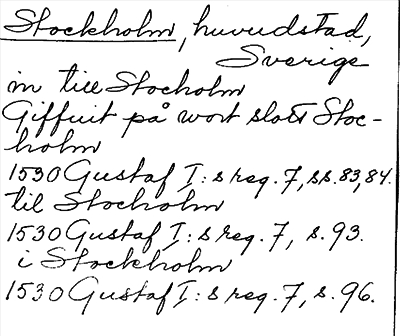 Stockholm, huvudstad,
Sverige
in till Stocholm
Giffuit på wort slott Stoc-
holm
1530 Gustaf I:s reg. 7, ss. 83, 84.
til Stocholm
1530 Gustaf I:s reg. 7, s. 93.
i Stockholm
1530 Gustaf I:s reg. 7, s. 96.